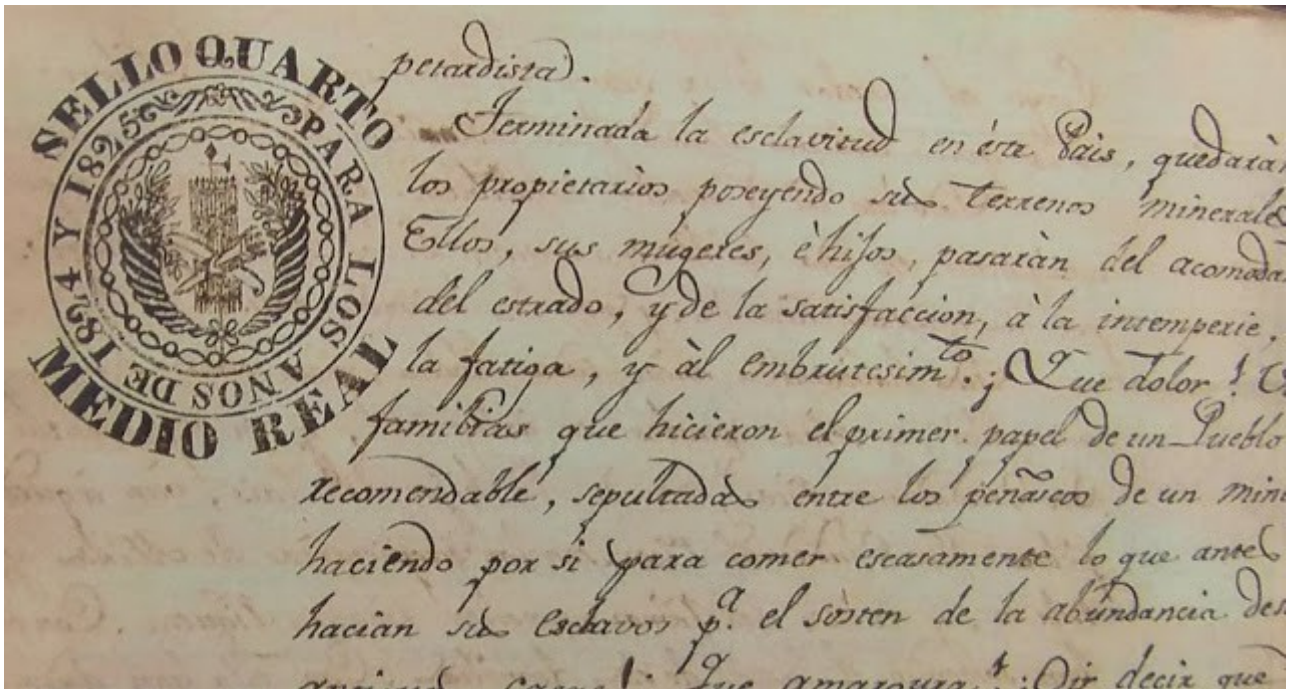 SELLO QUARTO
PARA LOS AÑOS DE 1824 Y 1825
MEDIO REAL
petardista.
Terminada la esclavitud en ésta Pais, quedaràn
los propietarios poseyendo sus terrenos minerales
Ellos, sus mugeres, è hijos, pasaràn del acomoda
del estrado, y de la satisfaccion, à la intemperie,
la fatiga, y àl embrutesimto. ¡Que dolor!
familias que hicieron el primer papel de un Pueblo
recomendable, sepultadas entre los peñascos de un mine
haciendo por si para comer escasamente lo que antes
hacian sus esclavos pa. el sosten de la abundancia de su
casa! que amargura! ¡Oir decir que